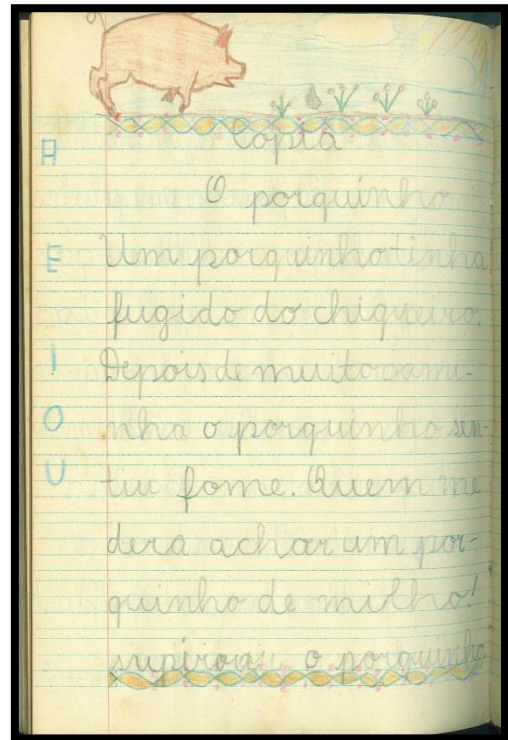 Cópia
O porquinho
A
Um porquinho tinha
E
fugido do chiqueiro.
Depois de muito cami-
I
nha o porquinho sen-
O
tiu fome. Quem me
U
dera achar um por-
quinho de milho!
supirou o porquinho